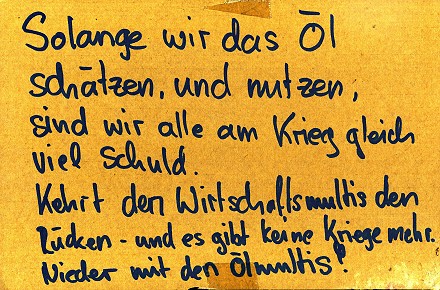 Solange wir das Öl
schätzen, und nutzen,
sind wir alle am Krieg gleich
viel Schuld.
Kehrt den Wirtschaftsmultis den
Rücken - und es gibt keine Kriege mehr.
Nieder mit den Ölmultis!